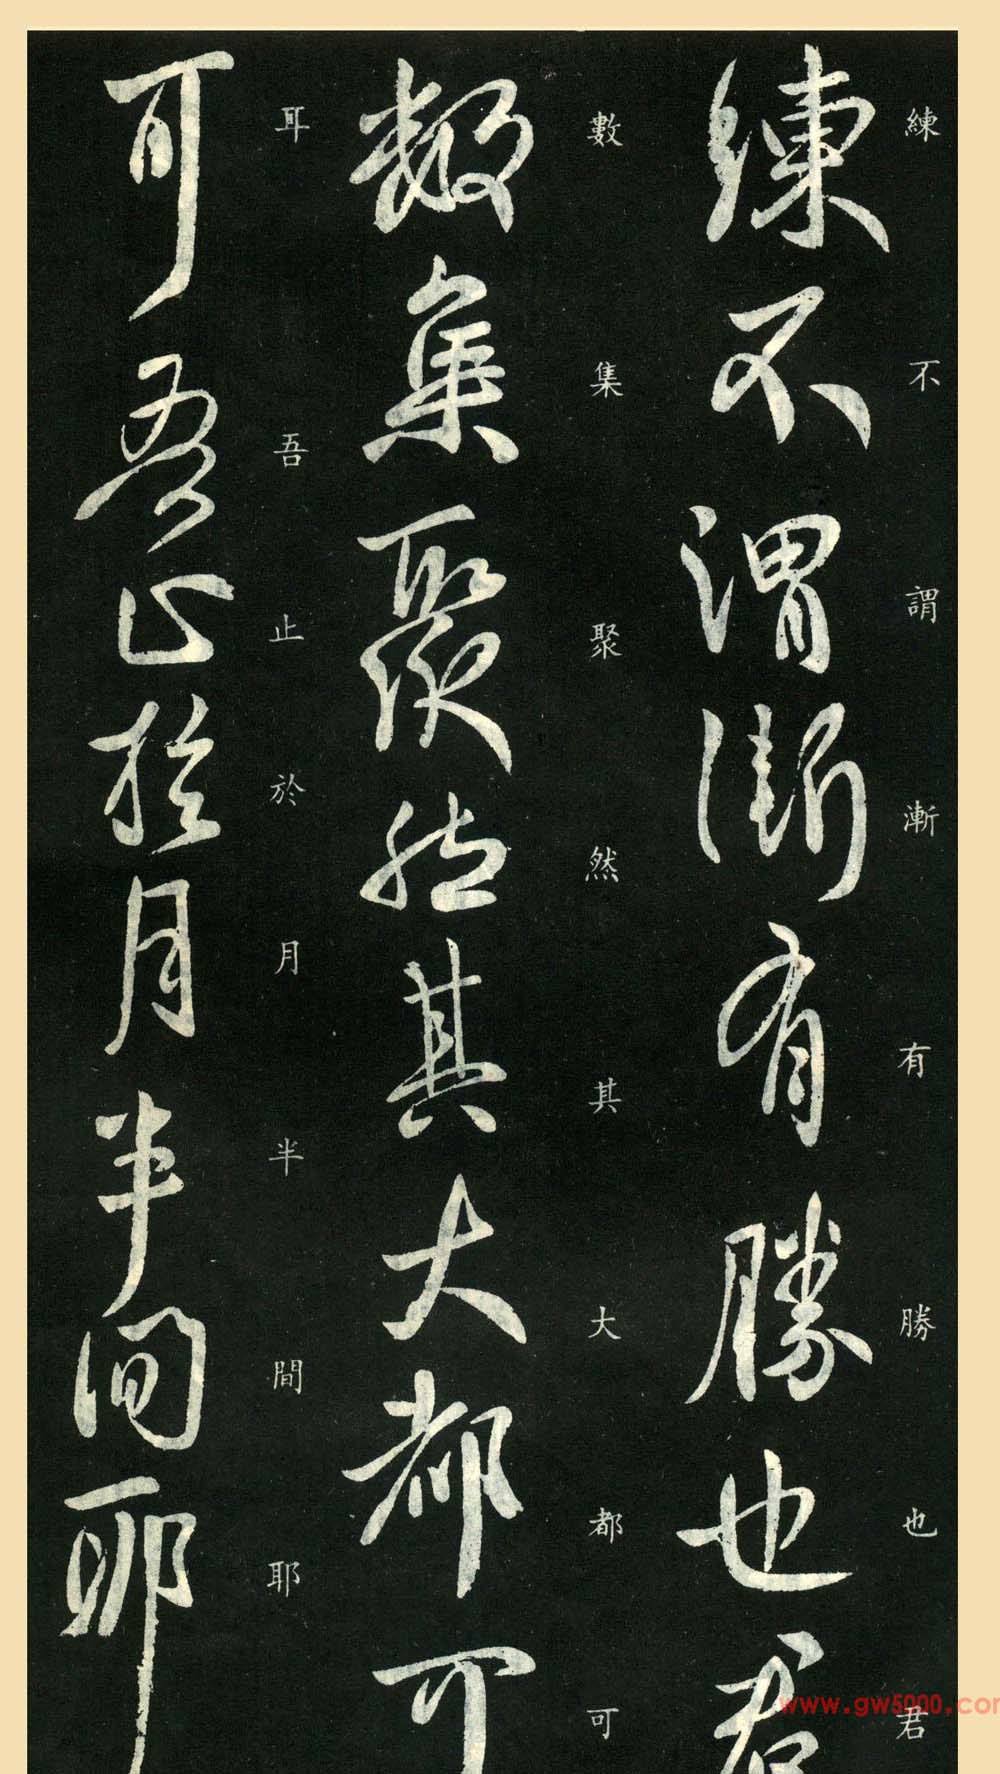 練不謂漸有勝也君
數集聚然其大都可
耳吾止於月半間耶
練不謂漸有勝也君
數集聚然其大都可
耳吾止於月半間耶
www.gw5000.com